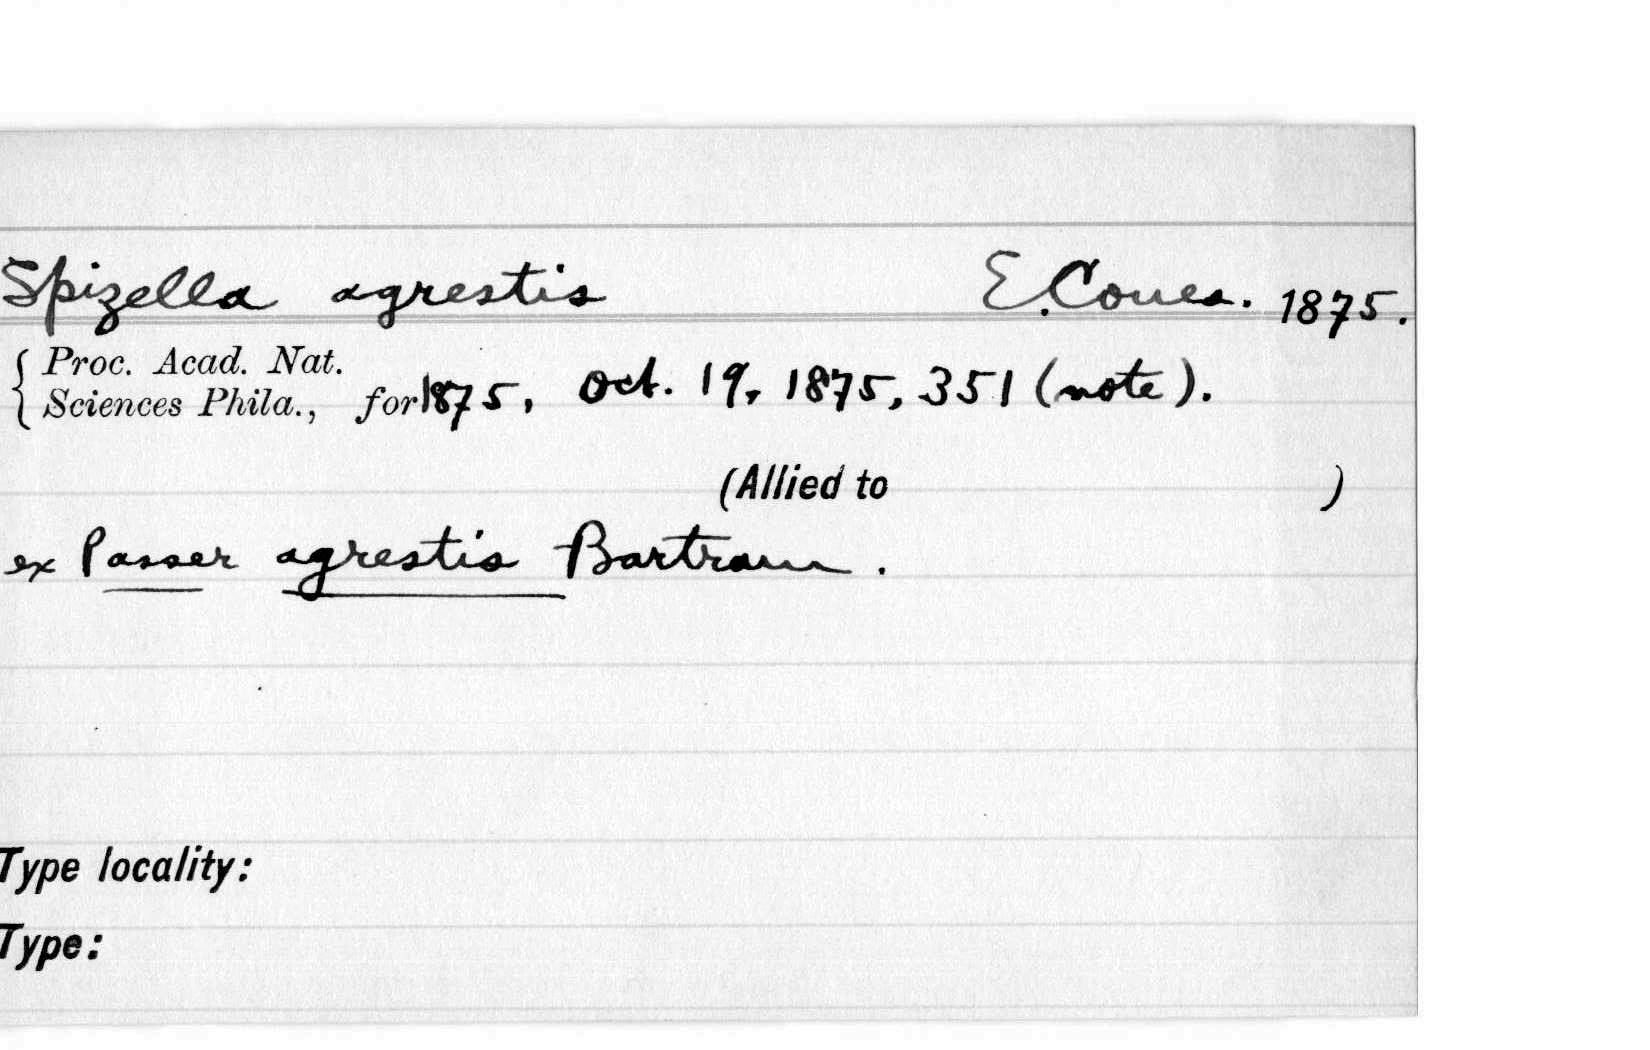 Spizella agrestis E. Coues. 1875.
Proc. Acad. Nat.
Sciences Phila., for 1875, Oct. 19, 1875, 351 (note).
(Allied to )
ex Passer agrestis Bartram.
Type locality:
Type: